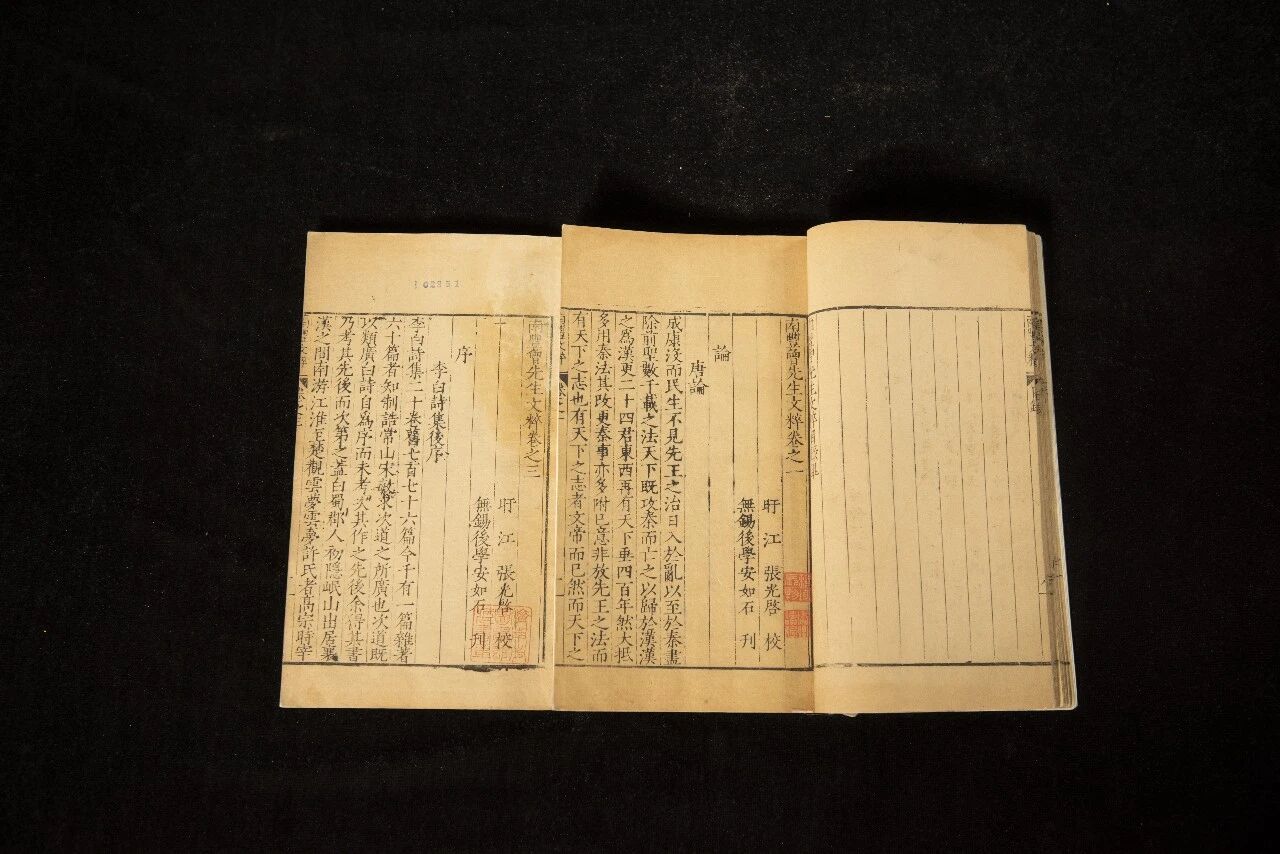 南豐曾先生文粹卷之一
盱江張光啓校
無錫後學安如石刊
論
唐論
成康沒而民生不見先王之治日入於亂以至於秦盡
除前聖數千載之法天下既攻秦而亡之以歸於漢漢
之爲漢更二十四君東西再有天下垂四百年然大抵
多用秦法其改更秦事亦多附已意非放先王之法而
有天下之志也有天下之志者文帝而已然而天下之
162351
南豐曾先生文粹卷之三
盱江張光啓校
無錫後學安如石刊
序
李白詩集後序
李白詩集二十卷舊七百七十六篇今千有一篇雜著
六十篇者知制誥常山宋敏求次道之所廣也次道既
以類廣白詩自爲序而未考次其作之先後余得其書
乃考其先後而次第之蓋白蜀郡人初隱岷山出居襄
漢之間南游江淮至楚觀雲夢雲夢許氏者高宗時宰